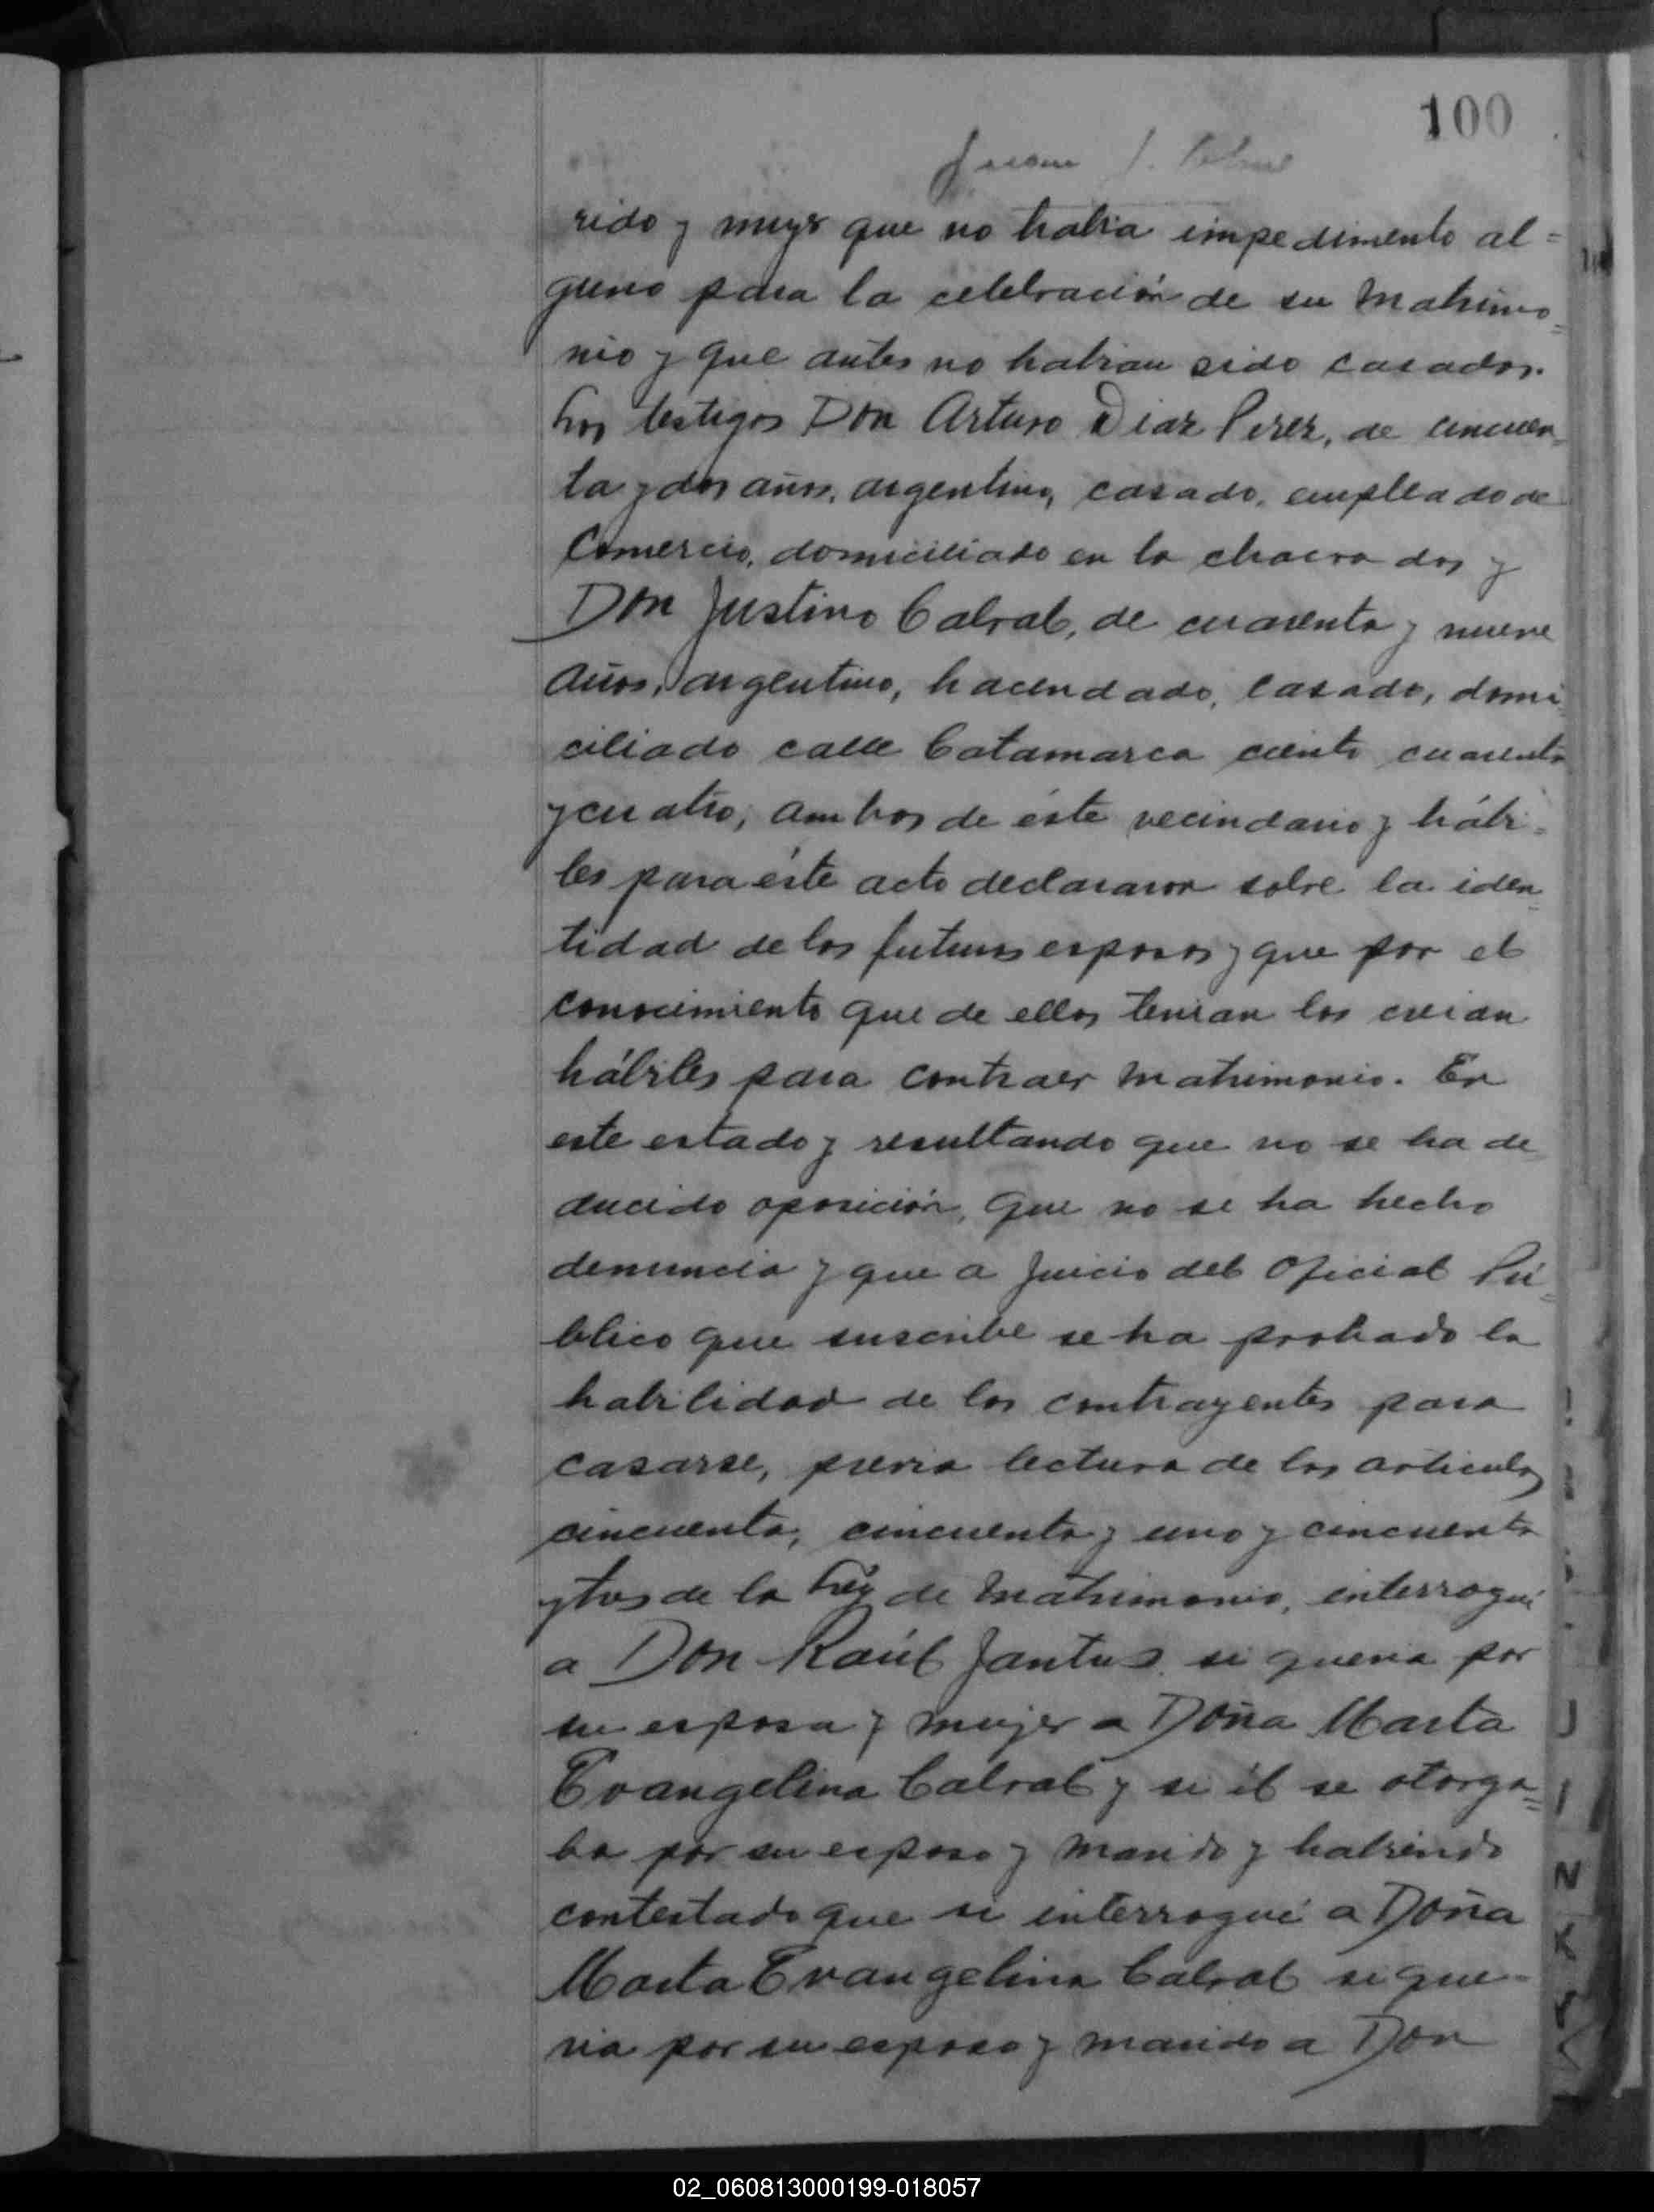 100
Juan J.
rido y mujer que no habia impedimento al=
guno para la celebración de su Matrimo=
nio y que antes no habian sido casados.
Los testigos Don Arturo Diaz Perez, de cincuen=
ta y dos años, argentino, casado, empleado de
Comercio, domiciliado en la chacra dos y
Don Justino Cabral, de cuarenta y nueve
años, argentino, hacendado, casado, domi=
ciliado calle Catamarca ciento cuarenta
y cuatro, ambos de éste vecindario y hábi=
les para éste acto declararon sobre la iden=
tidad de los futuros esposos y que por el
conocimiento que de ellos tenian los creian
hábiles para contraer Matrimonio. En
este estado y resultando que no se ha de
ducido oposición, que no se ha hecho
denuncia y que a juicio del Oficial Pú=
blico que suscribe se ha probado la
habilidad de los contrayentes para
casarse, previa lectura de los articulos
cincuenta, cincuenta y uno y cincuenta
y tres de la Ley de Matrimonio, interrogué
a Don Raúl Jantus si queria por
su esposa y mujer a Doña Marta
Evangelina Cabral y si él se otorga=
ba por su esposo y marido y habiendo
contestado que si interrogué a Doña
Marta Evangelina Cabral si que=
ria por su esposo y marido a Don
02_060813000199-018057